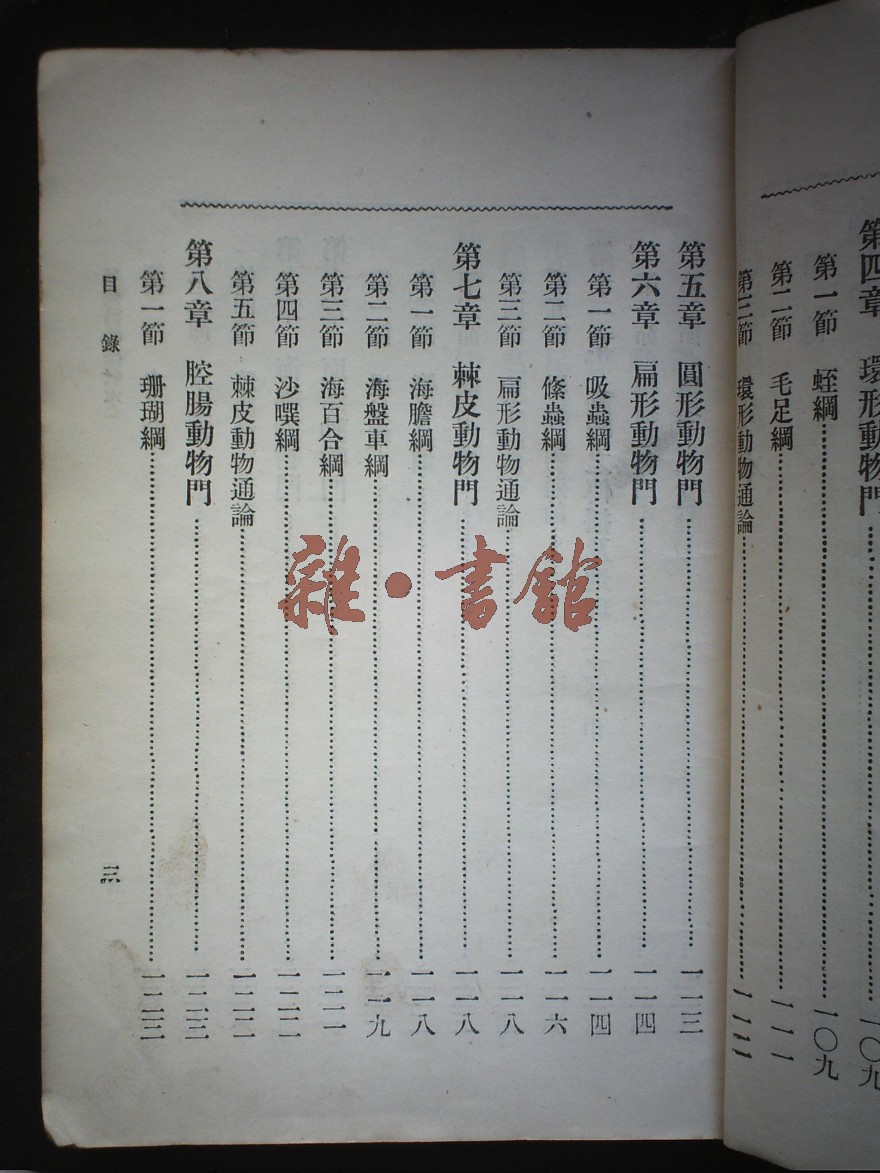 第四章 環形動物門……一〇九
第一節 蛭綱……一〇九
第二節 毛足綱……一一一
第三節 環形動物通論……一一二
第五章 圓形動物門……一一三
第六章 扁形動物門……一一四
第一節 吸蟲綱……一一四
第二節 絛蟲綱……一一六
第三節 扁形動物通論……一一八
第七章 棘皮動物門……一一八
第一節 海膽綱……一一八
第二節 海盤車綱……一一九
第三節 海百合綱……一二一
第四節 沙噀綱……一二二
第五節 棘皮動物通論……一二二
第八章 腔腸動物門……一二三
第一節 珊瑚綱……一二三
目錄 三
雜·書館